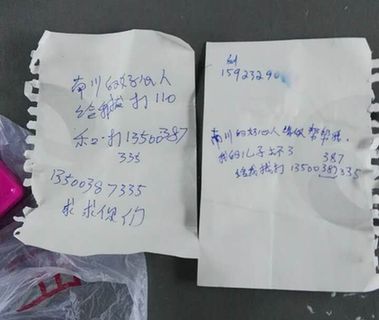 南川的好心人
给我拨打110
和打13500387
335
13500387335
求求你们
15923290
南川的好心人 帮帮我.
我的儿子
387
给我拨打 13500387335